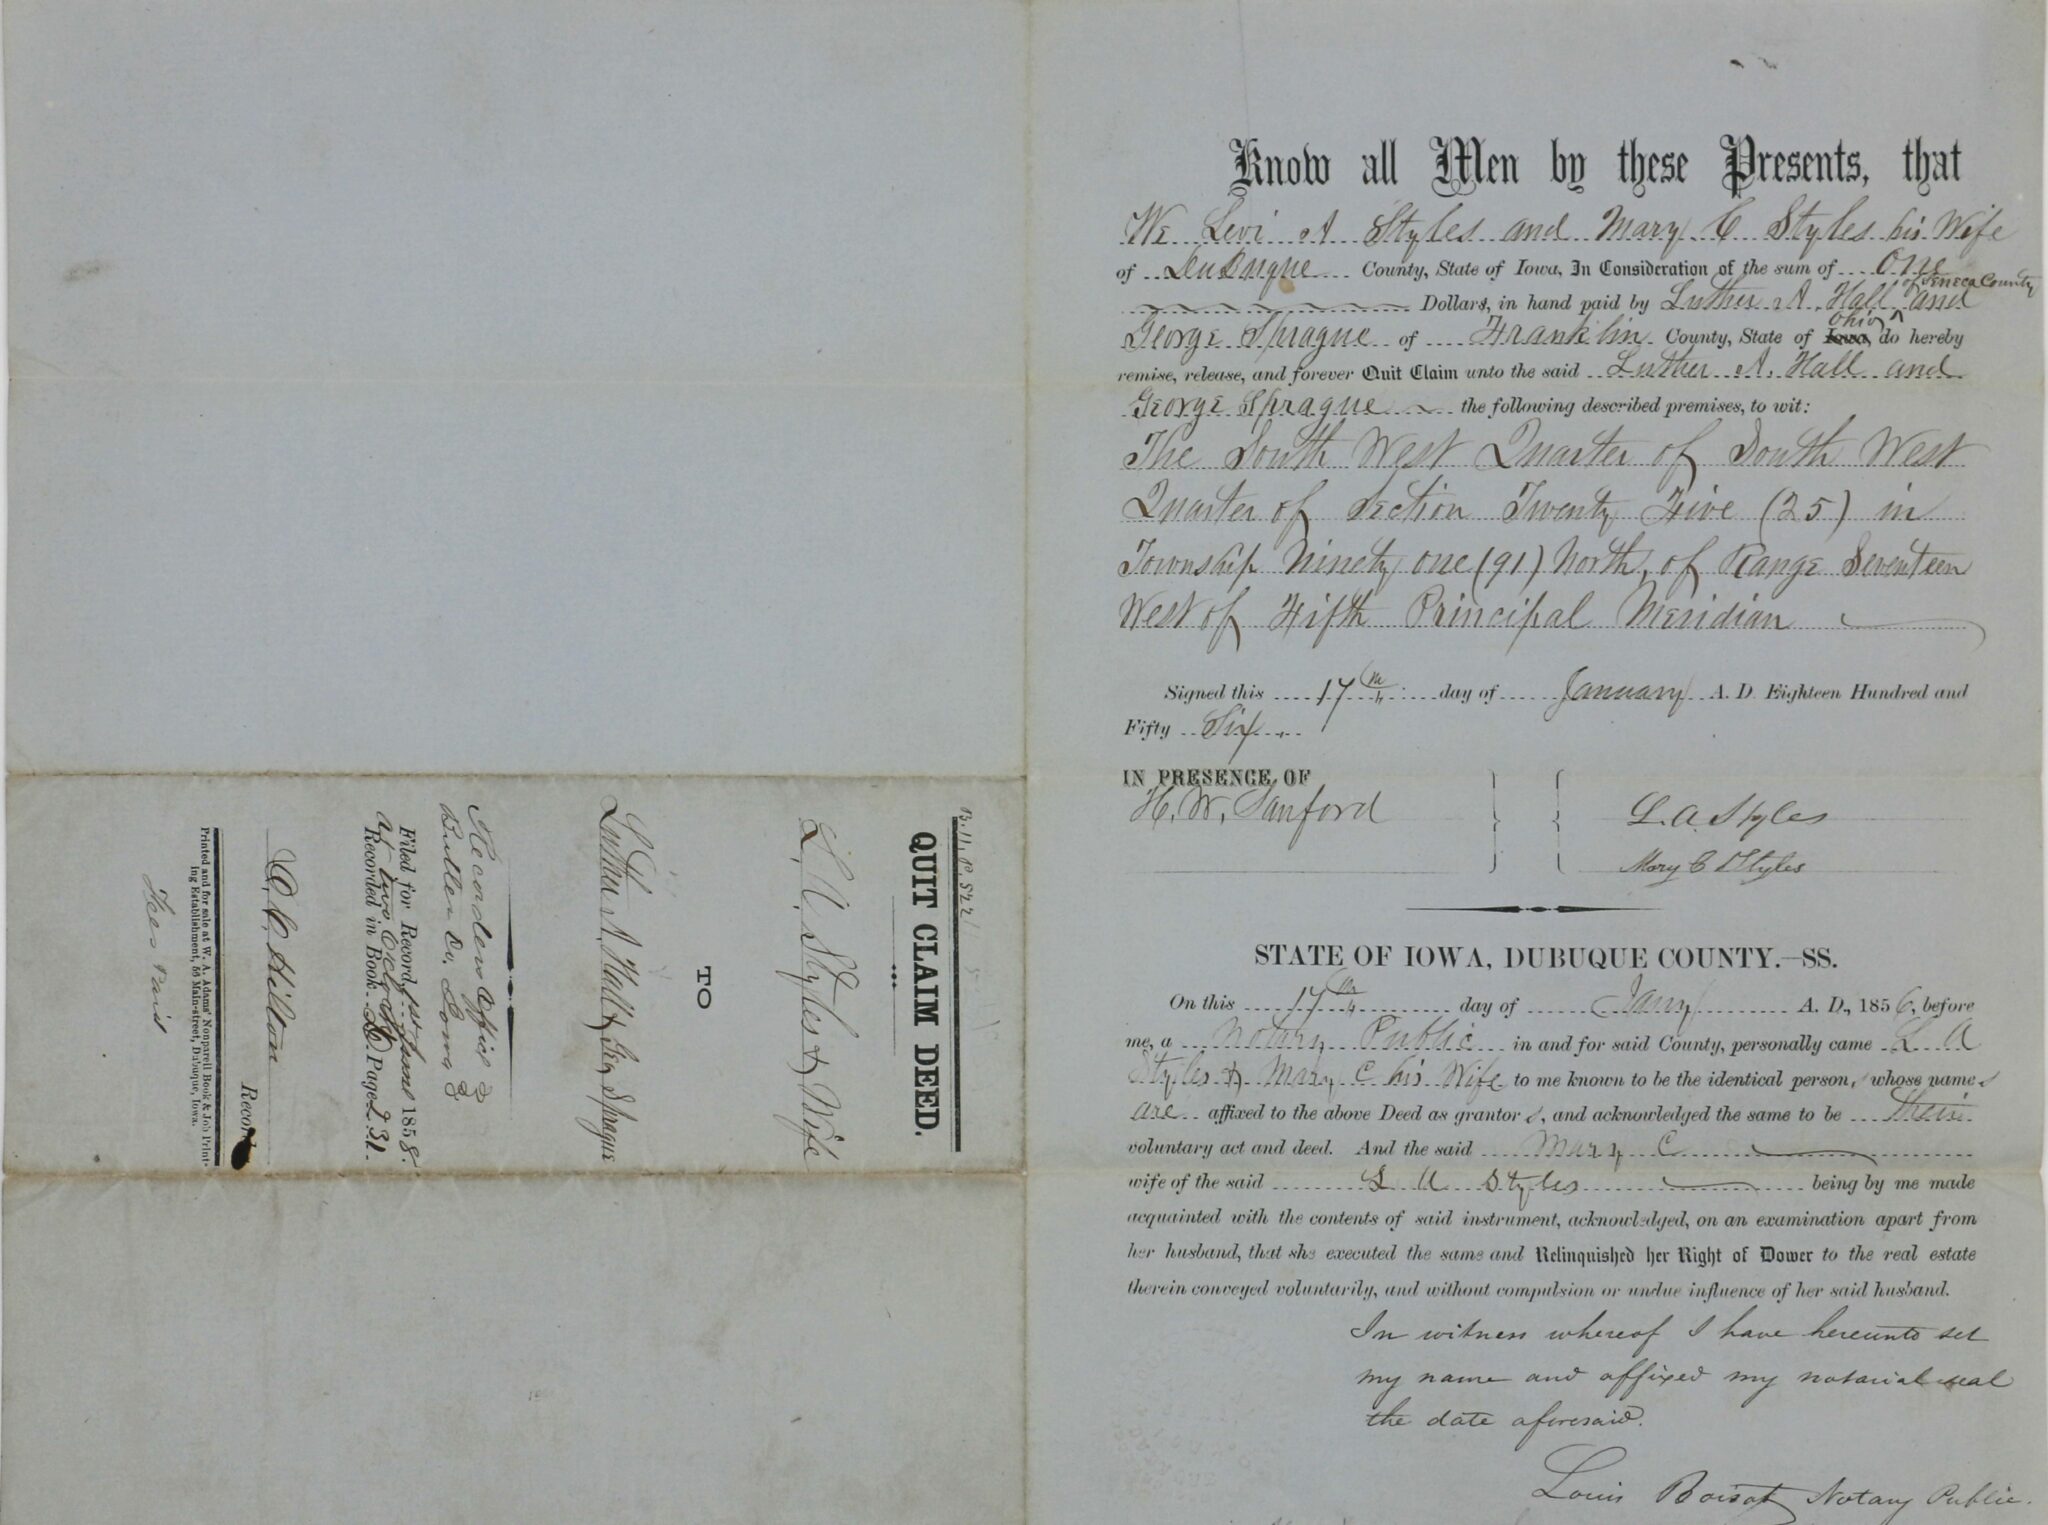 Know all Men by these Presents, that
We Levi A Styles and Mary C Styles his Wife
of DuBuque County, State of Iowa, In Consideration of the sum of One
of Seneca County
Dollars, in hand paid by Luther A. Hall ^ and
Ohio
George Sprague of Franklin County, State of Iowa, do hereby
remise, release, and forever Quit Claim unto the said Luther A. Hall and
George Sprague the following described premises, to wit:
The South West Quarter of South West
Quarter of Section Twenty Five (25) in
Township Ninety one (91) North, of Range Seventeen
West of Fifth Principal Meridian
Signed this 17th day of January A. D. Eighteen Hundred and
Fifty Six.
IN PRESENCE OF
H. W. Sanford
L. A. Styles
Mary C Styles
STATE OF IOWA, DUBUQUE COUNTY.—SS.
On this 17th day of Jany A. D., 1856, before
me, a Notary Public in and for said County, personally came L A
Styles & Mary C his Wife to me known to be the identical persons whose names
are affixed to the above Deed as grantors, and acknowledged the same to be their
voluntary act and deed. And the said Mary C
wife of the said L A Styles being by me made
acquainted with the contents of said instrument, acknowledged, on an examination apart from
her husband, that she executed the same and Relinquished her Right of Dower to the real estate
therein conveyed voluntarily, and without compulsion or undue influence of her said husband.
In witness whereof I have hereunto set
my name and affixed my notarial seal
the date aforesaid.
Louis Boisot Notary Public.
B. 11, P. 522
QUIT CLAIM DEED.
L. A. Styles & Wife
TO
Luther A. Hall & Geo Sprague
Recorders Office
Butler Co, Iowa
Filed for Record 1st June 1858.
at two Oclock
Recorded in Book D Page 231.
C. C. Hilton
Record
Printed and for sale at W. A. Adams' Nonpareil Book & Job Print-
ing Establishment, 55 Main-street, Dubuque, Iowa.
Fees Paid